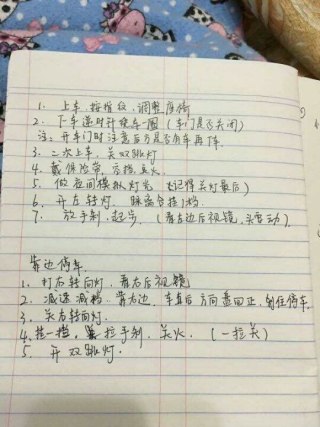 1. 上车,按指纹,调整座椅
2. 下车逆时针绕车一圈(车门是否关闭)
注:开车门时注意后方是否有车再下.
3. 二次上车,关双跳灯
4. 戴保险带,空挡,点火
5. 做夜间模拟灯光(记得关灯最后)
6. 开左转灯,踩离合挂1档.
7. 放手刹,起步.(看左边后视镜,头要动)
靠边停车.
1. 打右转向灯,看右后视镜
2. 减速减档,靠右边,车直后方向盘回正,刹住停车.
3. 关右转向灯.
4. 挂一档,拉手刹,关火.(一拉关)
5. 开双跳灯.